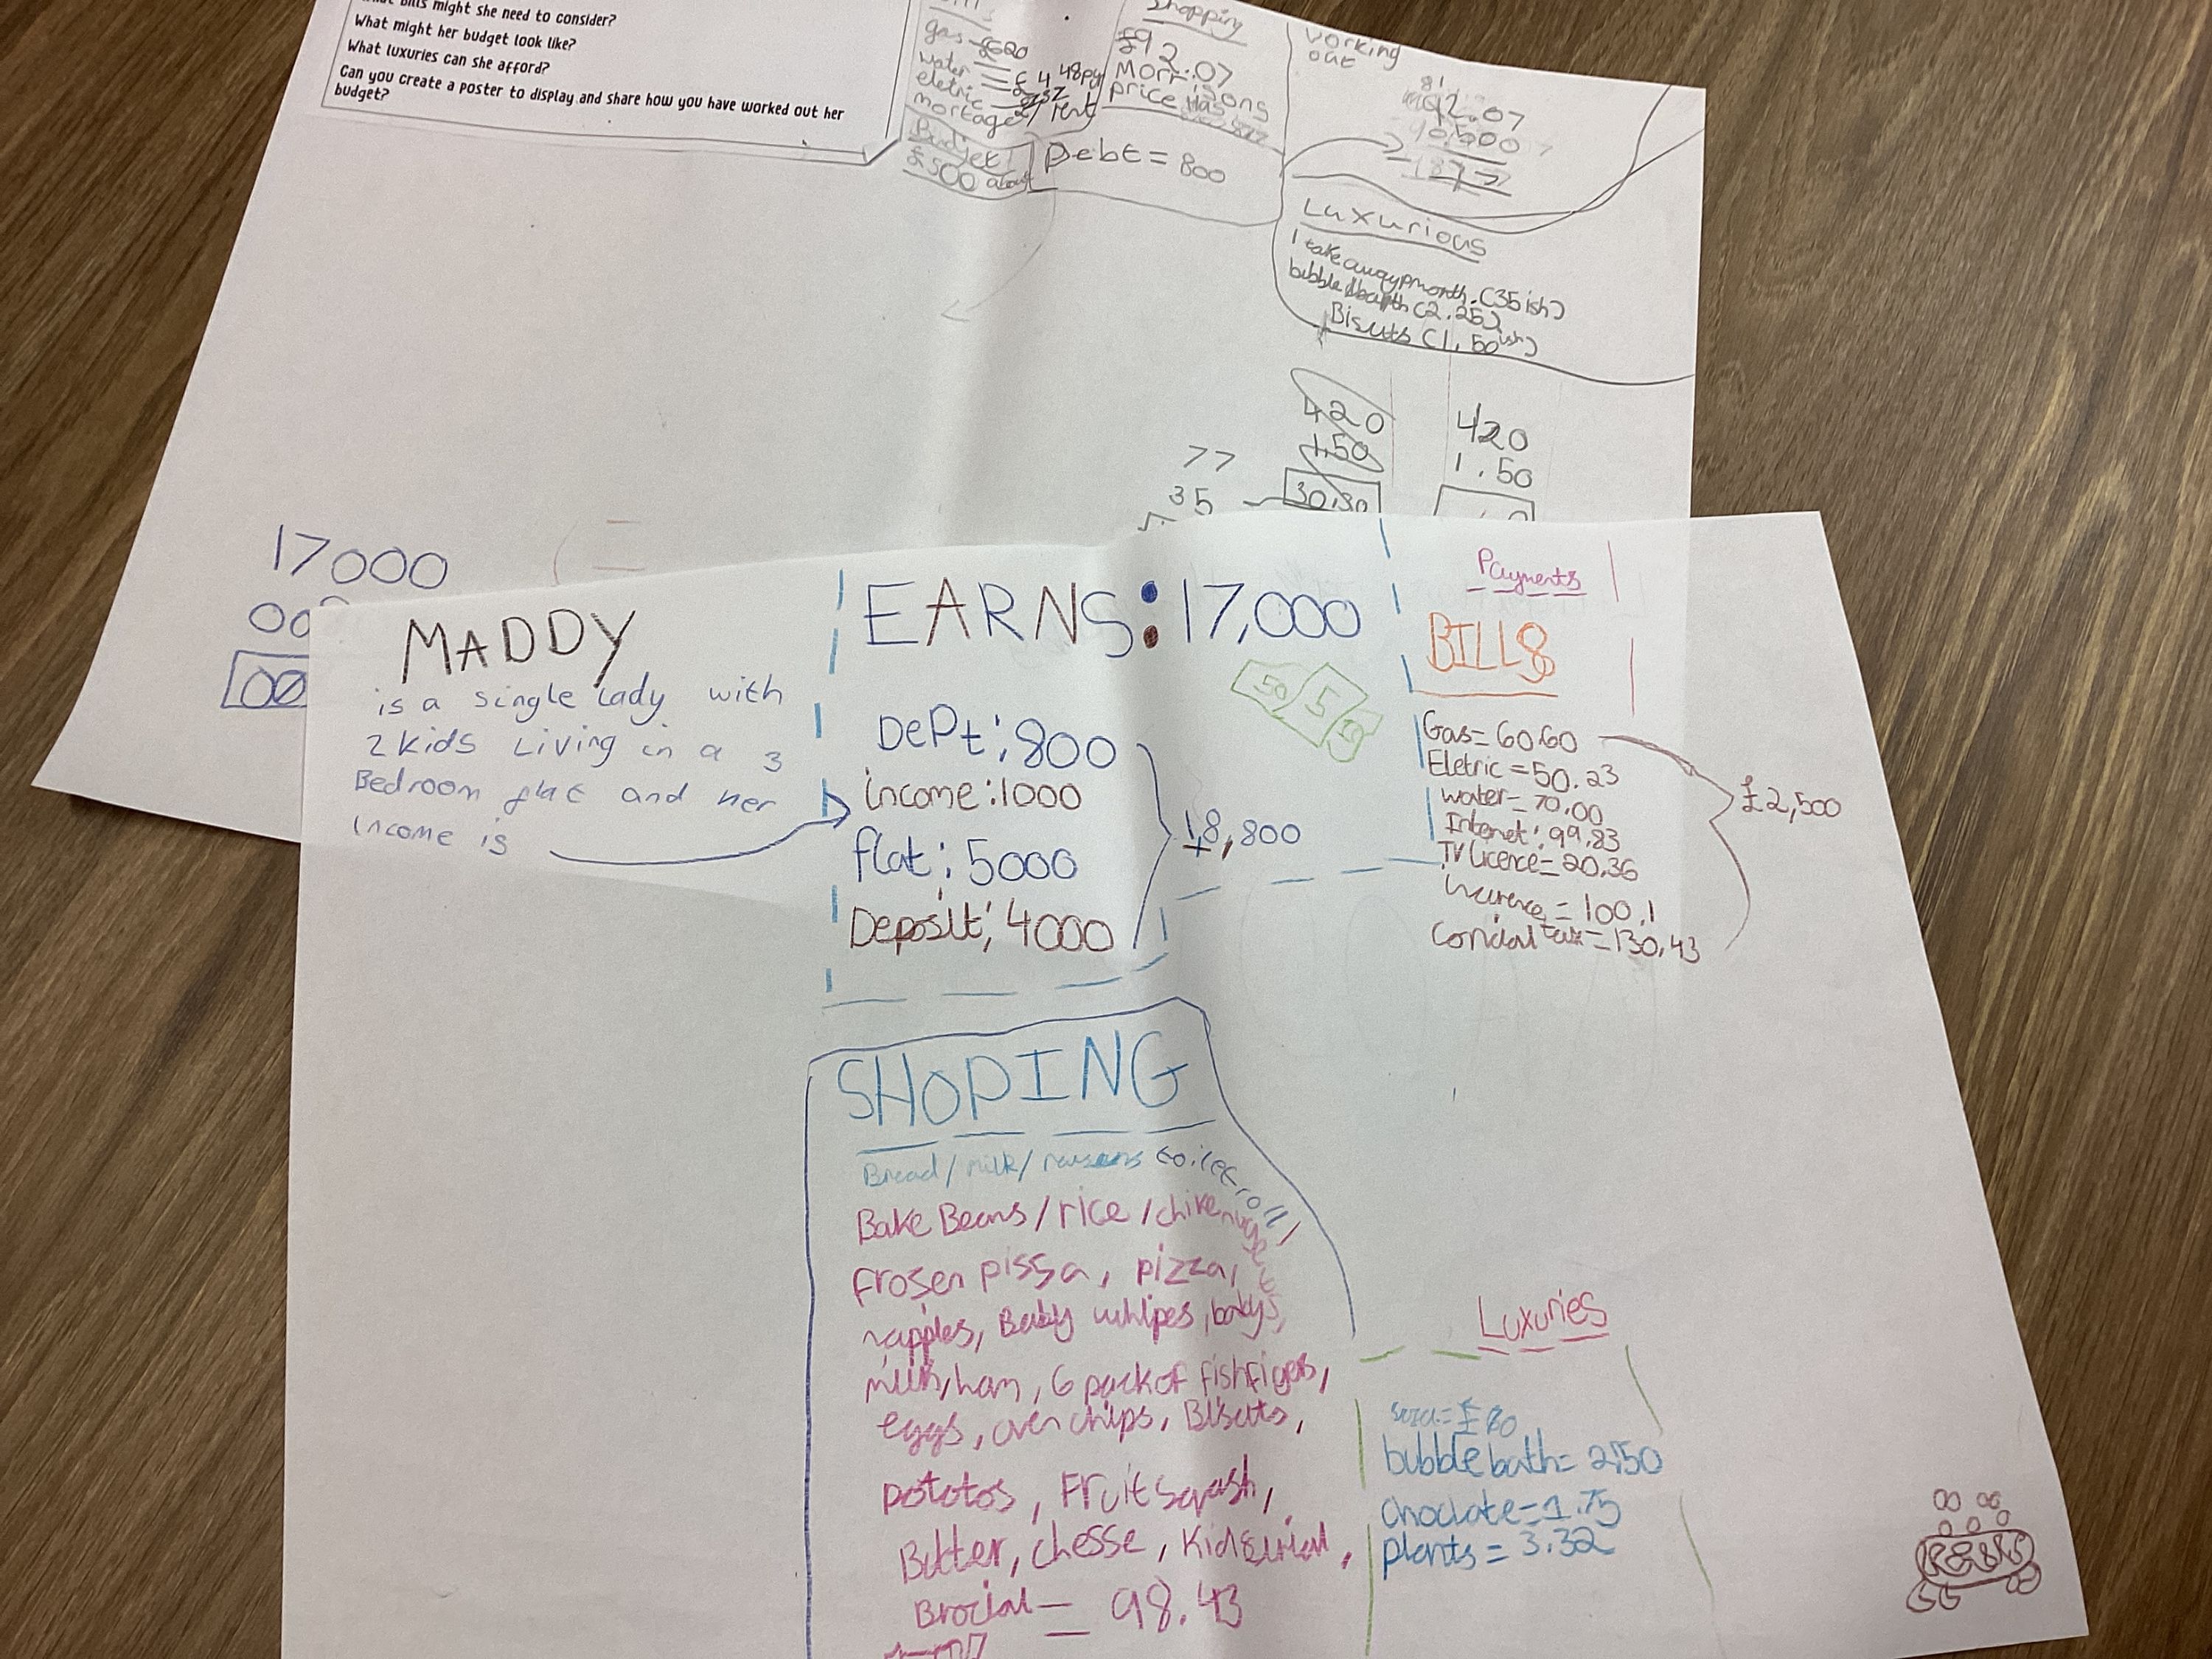 bills might she need to consider?
What might her budget look like?
What luxuries can she afford?
Can you create a poster to display and share how you have worked out her
budget?
gas
water = £4 48py
eletric
mortage / rent
Budjet
£500 about
Shopping
£92.07
Morrisons
price
Debt = 800
working
out
92.07
Luxurious
1 take away pmonth (35ish)
bubble bath (2.25)
Biscuts (1,50ish)
420
150
30.30
420
1.50
77
35
17000
00
MADDY
is a single lady with
2 kids Living in a 3
Bedroom flat and her
income is
EARNS: 17,000
50 5 10
Dept: 800
income: 1000
flat: 5000
Deposit: 4000
18,800
Payments
BILLS
Gas= 60.60
Eletric = 50.23
water= 70.00
Internet: 99.83
TV Licence= 20.36
= 100.1
tax = 130.43
£2,500
SHOPING
Bread / milk / toiletroll
Bake Beans / rice /
frosen pissa, pizza,
napples, Baby whipes, babys,
milk, ham, 6 pack of fishfigers,
eggs, oven chips, Biscuts,
pototos, Fruit Sqash,
Butter, chesse,
= 98.43
Luxuries
= £80
bubble bath= 2.50
choclate=1.75
plants = 3.32